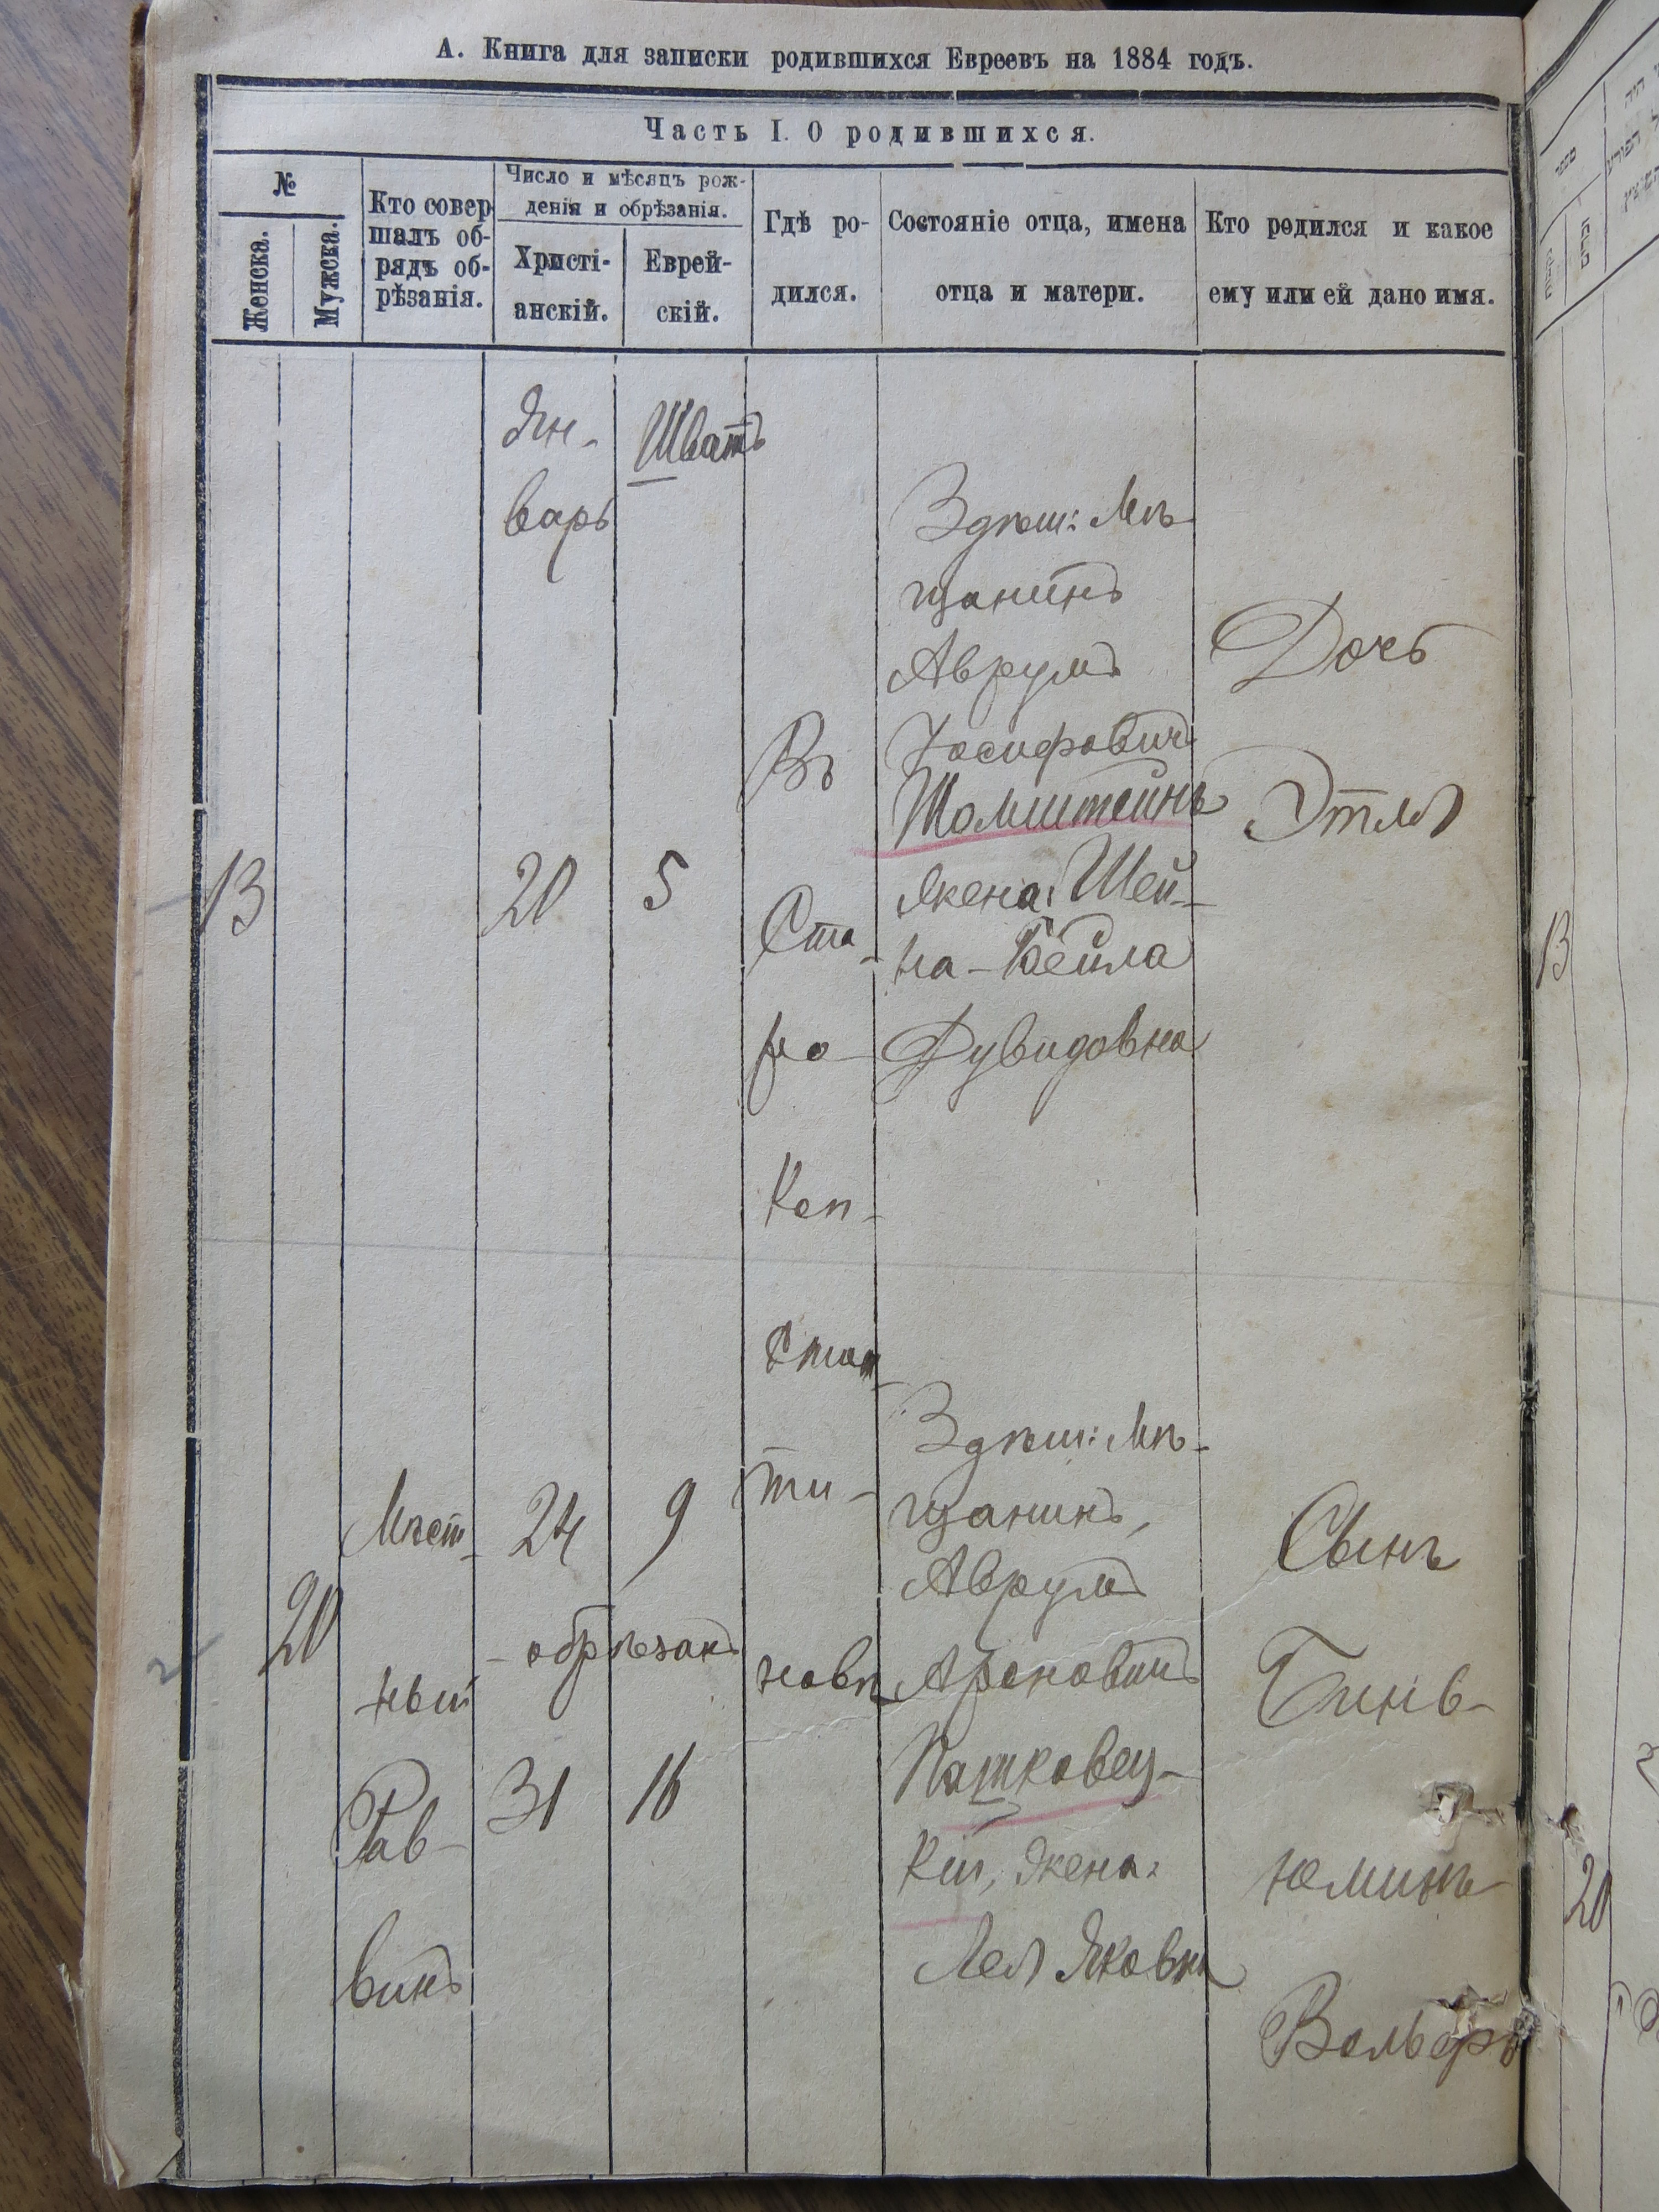 А. Книга для записки родившихся Евреевъ на 1884 годъ.
Часть I. О родившихся.
№
Женска.
Мужска.
Кто совер-
шалъ об-
рядъ об-
рѣзанія.
Число и мѣсяцъ рож-
денія и обрѣзанія.
Христі-
анскій.
Еврей-
скій.
Гдѣ ро-
дился.
Состояніе отца, имена
отца и матери.
Кто родился и какое
ему или ей дано имя.
Ян-
варь
Шватъ
13
20
5
Въ
Ста-
ро-
Кон-
стан-
ти-
новѣ
Здѣш: Мѣ-
щанинъ
Аврумъ
Іосифовичъ
Жена: Шей-
на-Бейла
Дувидовна
Дочь
Этля
20
Мѣст-
ный
Рав-
винъ
24
9
обрѣзанъ
31
16
Здѣш: Мѣ-
щанинъ,
Аврумъ
Ароновичъ
кій, Жена:
Лея Яковна
Сынъ
Бинь-
юминъ
Вольфъ
13
20